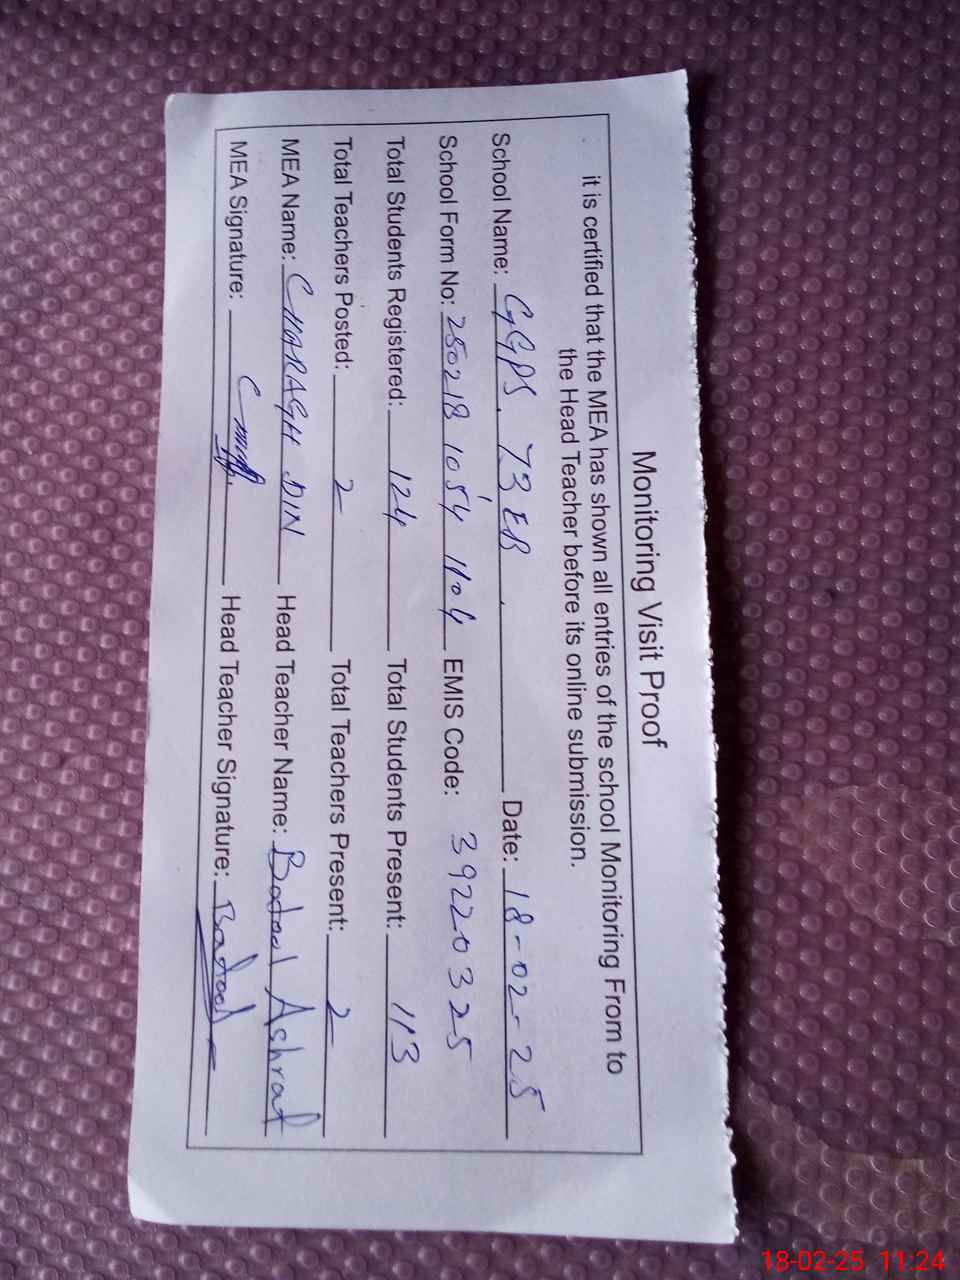 Monitoring Visit Proof
it is certified that the MEA has shown all entries of the school Monitoring From to
the Head Teacher before its online submission.
School Name: GGPS, 73 EB. Date: 18-02-25
School Form No: 250218 1054 1104 EMIS Code: 39220325
Total Students Registered: 124 Total Students Present: 113
Total Teachers Posted: 2 Total Teachers Present: 2
MEA Name: CHARAGH DIN Head Teacher Name: Batool Ashraf
MEA Signature: Head Teacher Signature: Batool
18-02-25 11:24